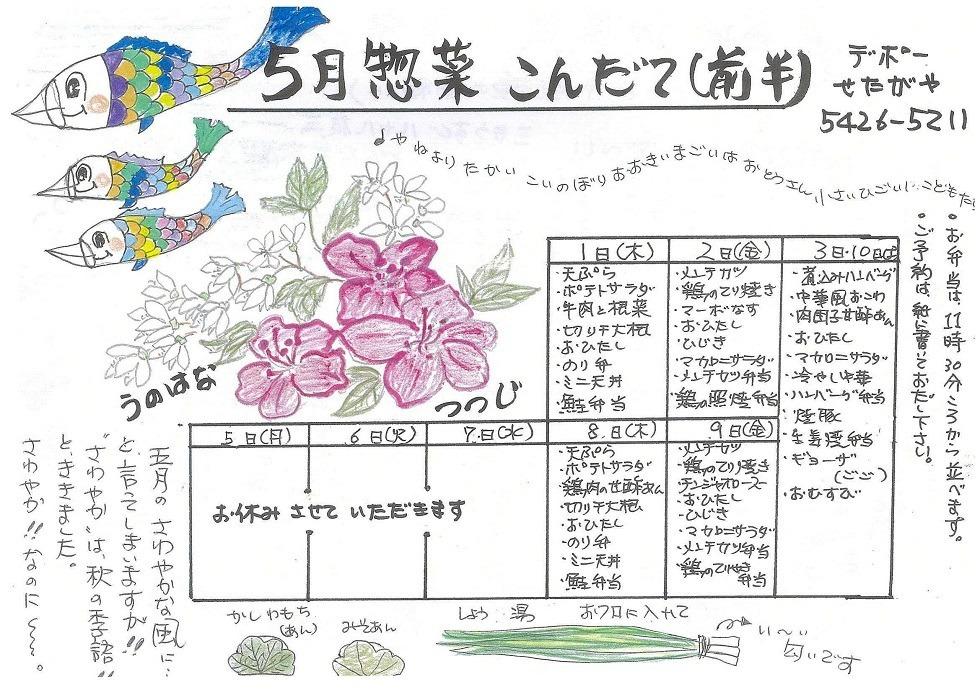 5月惣菜 こんだて(前半)
デポー
せたがや
5426-5211
♪やねよりたかい こいのぼり おおきいまごいは おとうさん 小さいひごいは こどもた
・お弁当は、11時30分ころから並べます。
・ご予約は、紙に書いておだし下さい。
1日(木)
・天ぷら
・ポテトサラダ
・牛肉と根菜
・切り干大根
・おひたし
・のり弁
・ミニ天丼
・鮭弁当
2日(金)
・メンチカツ
・鶏のてり焼き
・マーボなす
・おひたし
・ひじき
・マカロニサラダ
・メンチカツ弁当
・鶏の照焼弁当
3日・10日(土)
・煮込みハンバーグ
・中華風おこわ
・肉団子甘酢あん
・おひたし
・マカロニサラダ
・冷やし中華
・ハンバーグ弁当
・焼豚
・生姜焼弁当
・ギョーザ
(ごご)
・おむすび
うのはな
つつじ
5日(月)
6日(火)
7日(水)
お休みさせていただきます
8日(木)
・天ぷら
・ポテトサラダ
・鶏肉の甘酢あん
・切り干大根
・おひたし
・のり弁
・ミニ天丼
・鮭弁当
9日(金)
・メンチカツ
・鶏のてり焼き
・チンジャオロースー
・おひたし
・ひじき
・マカロニサラダ
・メンチカツ弁当
・鶏のてりやき
弁当
五月の さわやかな風に…
と、言ってしまいますが!!
"さわやか"は、秋の季語!!
と、ききました。
さわやか!!なのに〜〜。
かしわもち
(あん)
みそあん
しょうぶ湯
お風呂に入れて
い〜い
匂いです